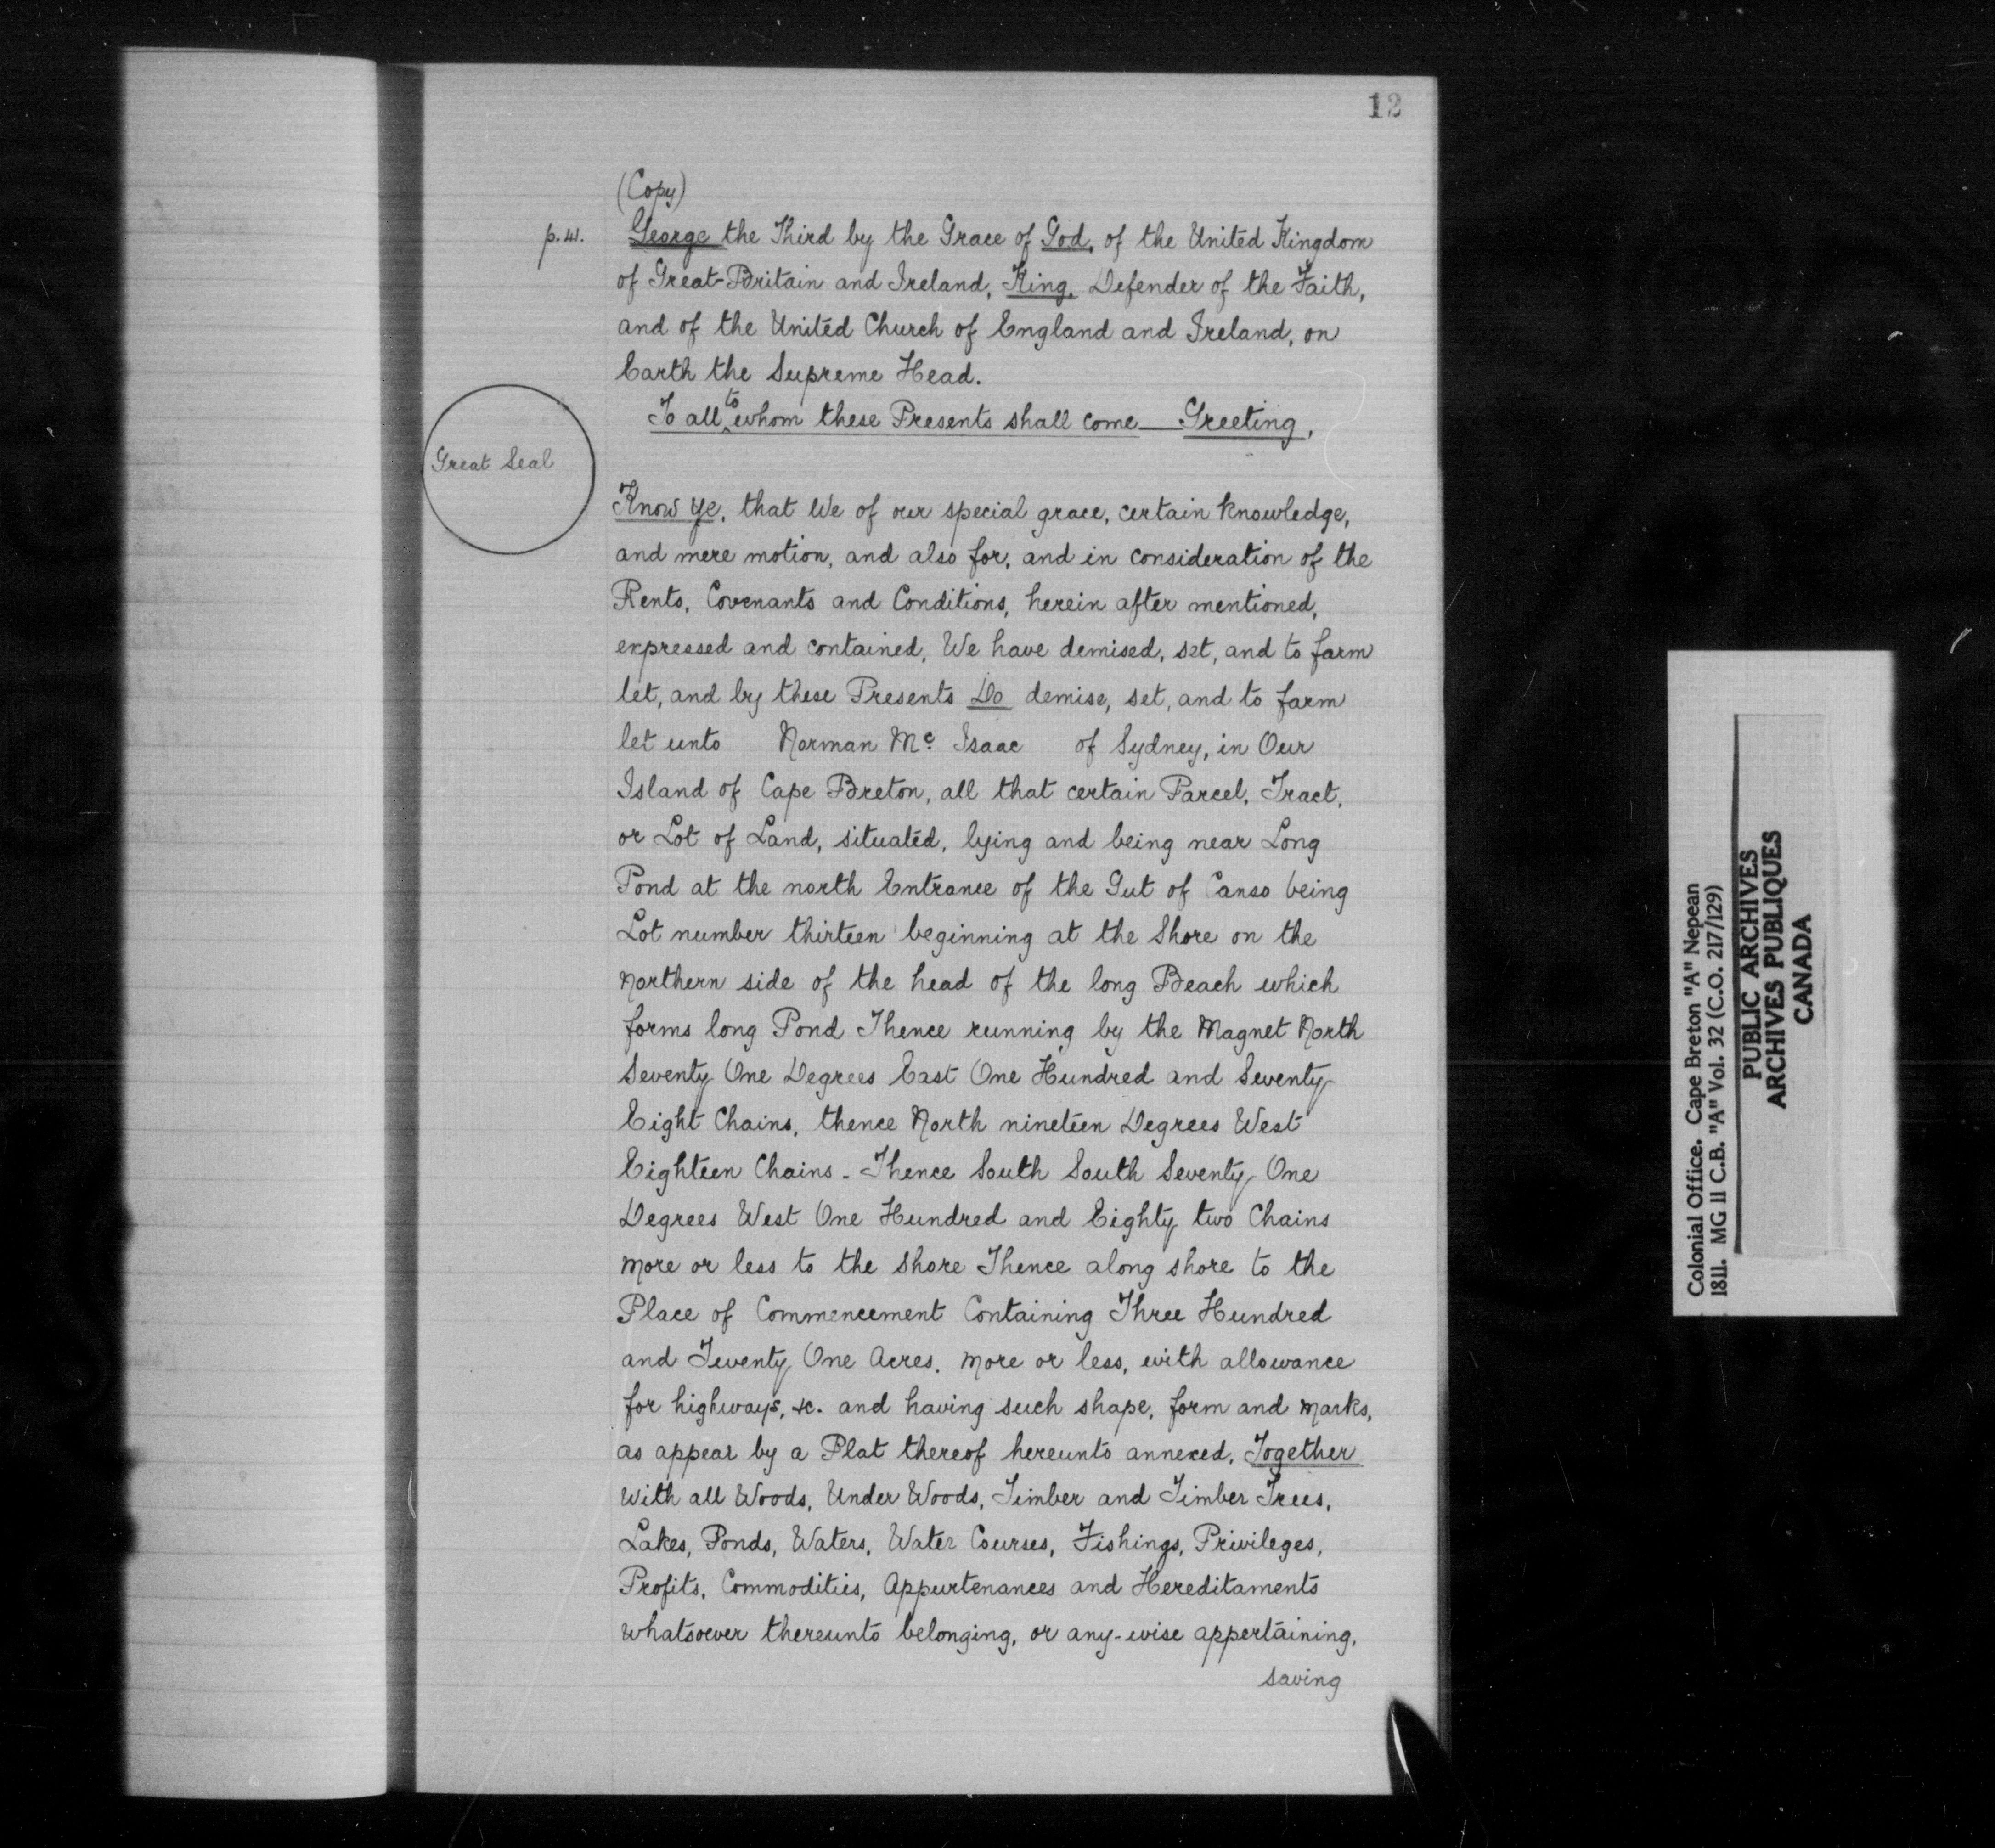 12
(Copy)
p.41. George the Third by the Grace of God, of the United Kingdom
of Great-Britain and Ireland, King, Defender of the Faith,
and of the United Church of England and Ireland, on
Earth the Supreme Head.
To all to whom these Presents shall come — Greeting,
Great Seal
Know Ye, that We of our special grace, certain knowledge,
and mere motion, and also for, and in consideration of the
Rents, Covenants and Conditions, herein after mentioned,
expressed and contained, We have demised, set, and to farm
let, and by these Presents Do demise, set, and to farm
let unto Norman Mc Isaac of Sydney, in Our
Island of Cape Breton, all that certain Parcel, Tract,
or Lot of Land, situated, lying and being near Long
Pond at the north Entrance of the Gut of Canso being
Lot number thirteen beginning at the Shore on the
Northern side of the head of the long Beach which
forms long Pond Thence running by the Magnet North
Seventy One Degrees East One Hundred and Seventy
Eight Chains, thence North nineteen Degrees West
Eighteen Chains - Thence South South Seventy One
Degrees West One Hundred and Eighty two Chains
more or less to the shore Thence along shore to the
Place of Commencement Containing Three Hundred
and Twenty One Acres, more or less, with allowance
for highways, &c. and having such shape, form and marks,
as appear by a Plat thereof hereunto annexed, Together
with all Woods, Under Woods, Timber and Timber Trees,
Lakes, Ponds, Waters, Water Courses, Fishings, Privileges,
Profits, Commodities, Appurtenances and Hereditaments
whatsoever thereunto belonging, or any-wise appertaining,
saving
Colonial Office. Cape Breton "A" Nepean
1811. MG 11 C.B. "A" Vol. 32 (C.O. 217/129)
PUBLIC ARCHIVES
ARCHIVES PUBLIQUES
CANADA